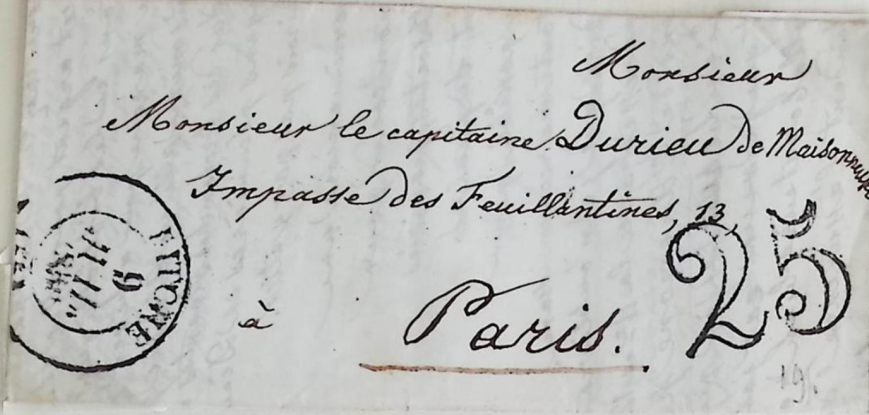 Monsieur
Monsieur le capitaine Durieu de Maisonneuve
Impasse des Feuillantines, 13,
à Paris.
25
9
JUIL.
19.